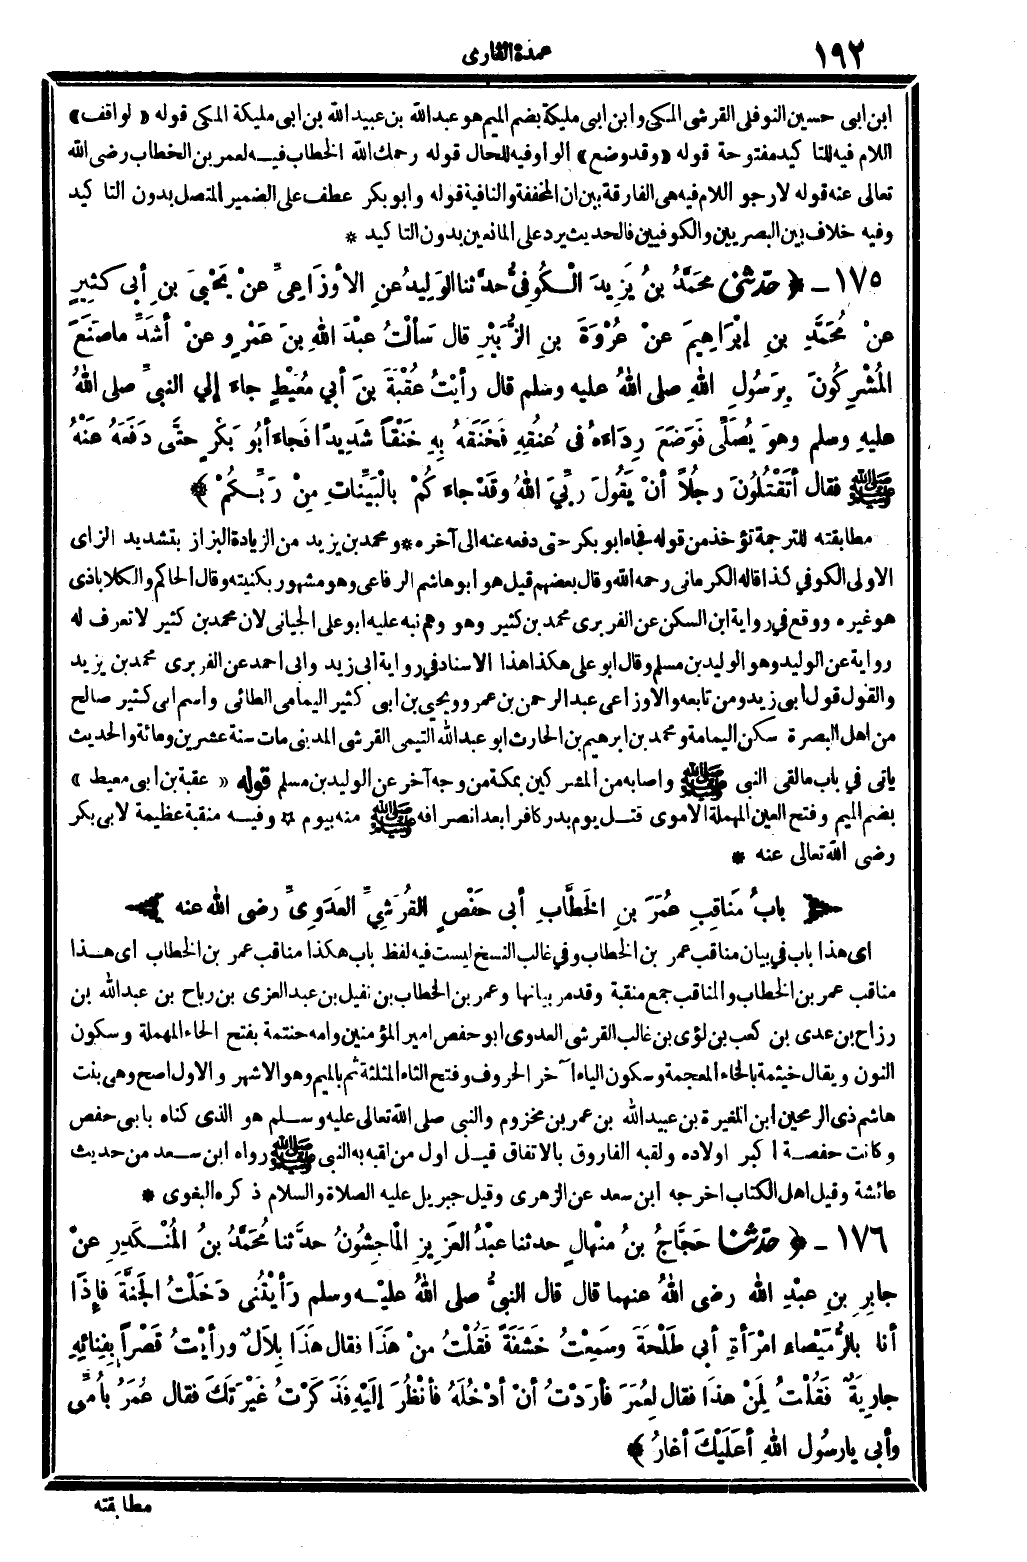 ١٩٢
عمدة القارى
ابن ابى حسين النوفلى القرشى المكى وابن ابى مليكة بضم الميم هو عبد الله بن عبيد الله بن ابى مليكة المكى قوله «لواقف»
اللام فيه للتاكيد مفتوحة قوله «وقد وضع» الواو فيه للحال قوله رحمك الله الخطاب فيه لعمر بن الخطاب رضى الله
تعالى عنه قوله لارجو اللام فيه هى الفارقة بين ان المخففة والنافية قوله وابو بكر عطف على الضمير المتصل بدون التاكيد
وفيه خلاف بين البصريين والكوفيين فالحديث يرد على المانعين بدون التاكيد *
١٧٥ - ﴿ حَدَّثَنِي مُحَمَّدُ بنُ يَزِيدَ الْكُوفِيُّ حدَّثنا الوَلِيدُ عنِ الأوْزَاعِيِّ عنْ يَحْيَى بنِ أبِي كَثِيرٍ
عنْ مُحَمَّدِ بنِ إبْرَاهِيمَ عنْ عُرْوَةَ بنِ الزُّبَيْرِ قال سَألْتُ عبْدَ اللهِ بنَ عَمْرٍو عنْ أشَدِّ ما صَنَعَ
المُشْرِكُونَ بِرَسُولِ اللهِ صلى اللهُ عليه وسلم قال رأيْتُ عُقْبَةَ بنَ أبي مُعَيْطٍ جاءَ إلي النبيِّ صلى اللهُ
عليهِ وسلم وهوَ يُصَلِّى فَوَضَعَ رِدَاءَهُ فى عُنُقِهِ فَخَنَقَهُ بِهِ خَنْقاً شَدِيدًا فَجاءَ أبُو بَكْرٍ حتَّى دَفَعَهُ عَنْهُ
ﷺ فقال أتَقْتُلُونَ رجُلاً أنْ يَقُولَ ربِّيَ اللهُ وقَدْ جاءَكُمْ بالْبَيِّناتِ مِنْ رَبِّكُمْ ﴾
مطابقته للترجمة تؤخذ من قوله فجاء ابو بكر حتى دفعه عنه الى آخره * ومحمد بن يزيد من الزيادة البزاز بتشديد الزاى
الاولى الكوفى كذا قاله الكرمانى رحمه الله وقال بعضهم قيل هو ابو هاشم الرفاعى وهو مشهور بكنيته وقال الحاكم والكلاباذى
هو غيره ووقع في رواية ابن السكن عن الفربرى محمد بن كثير وهو وهم نبه عليه ابو على الجيانى لان محمد بن كثير لا تعرف له
رواية عن الوليد وهو الوليد بن مسلم وقال ابو على هكذا هذا الاسناد في رواية ابى زيد وابى احمد عن الفربرى محمد بن يزيد
والقول قول أبى زيد ومن تابعه والاوزاعى عبد الرحمن بن عمرو ويحيى بن ابى كثير اليمامى الطائى واسم ابى كثير صالح
من اهل البصرة سكن اليمامة ومحمد بن ابرهيم بن الحارث ابو عبد الله التيمى القرشى المدنى مات سنة عشرين ومائة والحديث
ياتى في باب مالقى النبى ﷺ واصحابه من المشركين بمكة من وجه آخر عن الوليد بن مسلم قوله «عقبة بن ابى معيط»
بضم الميم وفتح العين المهملة الاموى قتل يوم بدر كافرا بعد انصرافه ﷺ منه بيوم * وفيه منقبة عظيمة لابى بكر
رضى الله تعالى عنه *
﴿ بابُ مَناقِبِ عُمَرَ بنِ الخَطَّابِ أبى حَفْصٍ القُرَشِيِّ العَدَوِىِّ رضى الله عنه ﴾
اى هذا باب في بيان مناقب عمر بن الخطاب وفي غالب النسخ ليست فيه لفظ باب هكذا مناقب عمر بن الخطاب اى هذا
مناقب عمر بن الخطاب والمناقب جمع منقبة وقد مر بيانها وعمر بن الخطاب بن نفيل بن عبد العزى بن رباح بن عبد الله بن
رزاح بن عدى بن كعب بن لؤى بن غالب القرشى العدوى ابو حفص امير المؤمنين وامه حنتمة بفتح الحاء المهملة وسكون
النون ويقال خيثمة بالخاء المعجمة وسكون الياء آخر الحروف وفتح الثاء المثلثة ثم بالميم وهو الاشهر والاول اصح وهى بنت
هاشم ذى الرمحين ابن المغيرة بن عبيد الله بن عمر بن مخزوم والنبى صلى الله تعالى عليه وسلم هو الذى كناه بابى حفص
وكانت حفصة اكبر اولاده ولقبه الفاروق بالاتفاق قيل اول من لقبه به النبى ﷺ رواه ابن سعد من حديث
عائشة وقيل اهل الكتاب اخرجه ابن سعد عن الزهرى وقيل جبريل عليه الصلاة والسلام ذكره البغوى *
١٧٦ - ﴿ حَدَّثَنَا حَجَّاجُ بنُ مِنْهالٍ حدثنا عبْدُ العَزِيزِ المَاجِشُونُ حدَّثنا مُحَمَّدُ بنُ المُنْكَدِرِ عنْ
جابِرِ بنِ عبْدِ اللهِ رضى اللهُ عنهما قال قال النبىُّ صلى اللهُ عليْه وسلم رَأيْتُنى دَخَلْتُ الجَنَّةَ فإذَا
أنا بالرُّمَيْصاءِ امْرَأةِ أبي طَلْحَةَ وسَمِعْتُ خَشَفَةً فقُلْتُ منْ هَذَا فقال هَذَا بِلاَلٌ ورأيْتُ قَصْراً بِفِنائِهِ
جارِيَةٌ فقُلْتُ لِمَنْ هذَا فقال لِعُمَرَ فأرَدْتُ أنْ أدْخُلَهُ فأنْظُرَ إلَيْهِ فَذَكَرْتُ غَيْرَتَكَ فقال عُمَرُ بأُمِّى
وأبى يارسُول اللهِ أعَلَيْكَ أغارُ ﴾
مطابقته